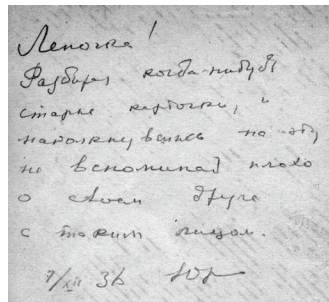 Леночка!
Разбирая когда-нибудь
старые карточки, и
натолкнувшись на эту
не вспоминай плохо
о своем друге
с таким лицом.
7/XII 36 Юр